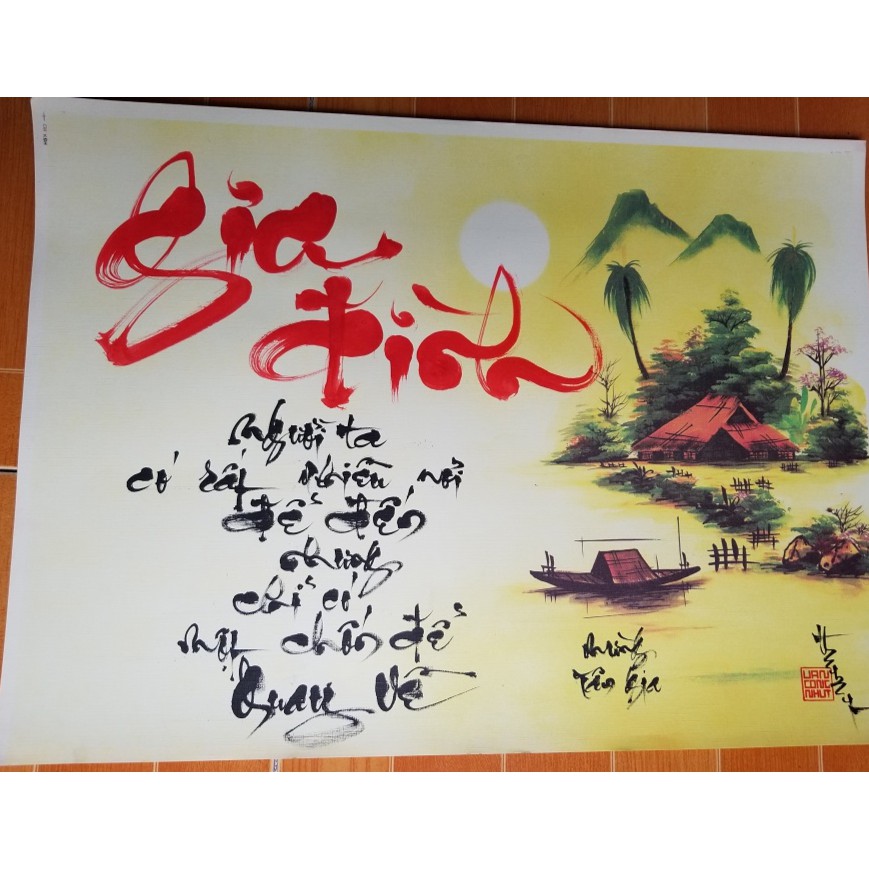 Gia
đình
Người ta
có rất nhiều nơi
để đến
nhưng
chỉ có
một chốn để
Quay Về
mừng
Tân Gia
VĂN
CÔNG
NHỰT